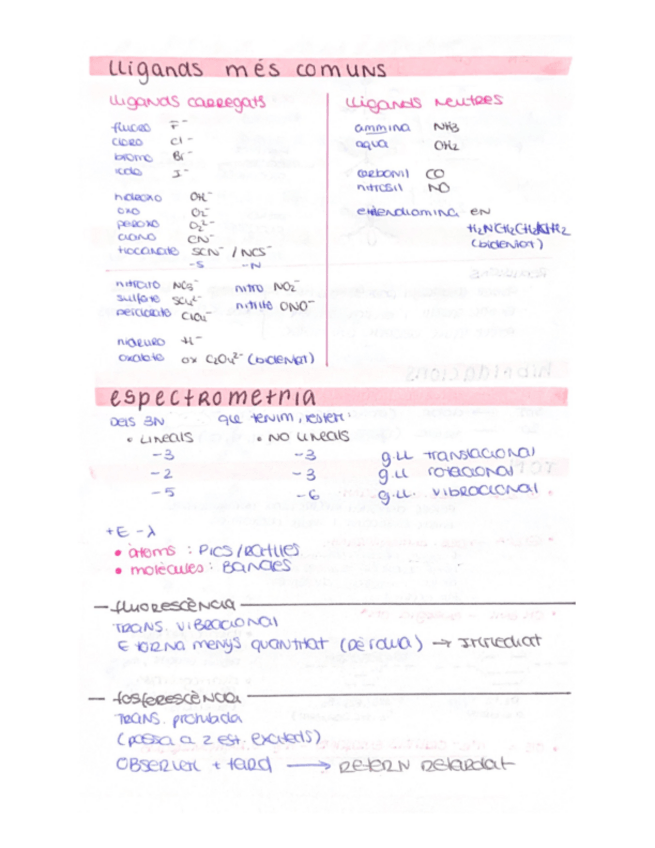 Lligands més comuns
Lligands carregats
fluoro F⁻
cloro Cl⁻
bromo Br⁻
iodo I⁻
hidroxo OH⁻
oxo O₂⁻
peroxo O₂²⁻
ciano CN⁻
tiocianate SCN⁻ / NCS⁻
-S -N
nitrato NO₃⁻ nitro NO₂⁻
sulfato SO₄²⁻ nitrito ONO⁻
perclorato ClO₄⁻
hidruro H⁻
oxalato ox C₂O₄²⁻ (bidentat)
Lligands neutres
ammina NH₃
aqua OH₂
carbonil CO
nitrosil NO
etilendiamina EN
H₂NCH₂CH₂NH₂
(bidentat)
espectrometria
Dels 3N que tenim, restem:
• LINEALS • NO LINEALS
-3 -3 g.ll translacional
-2 -3 g.ll rotacional
-5 -6 g.ll. vibracional
+E -λ
• àtoms : PICS / RATLLES
• molècules : BANDES
fluorescència
TRANS. VIBRACIONAL
E torna menys quantitat (pèrdua) → Immediat
fosforescència
TRANS. prohibida
(passa a 2 est. excitats)
OBSERVEM + tard → RETORN Retardat